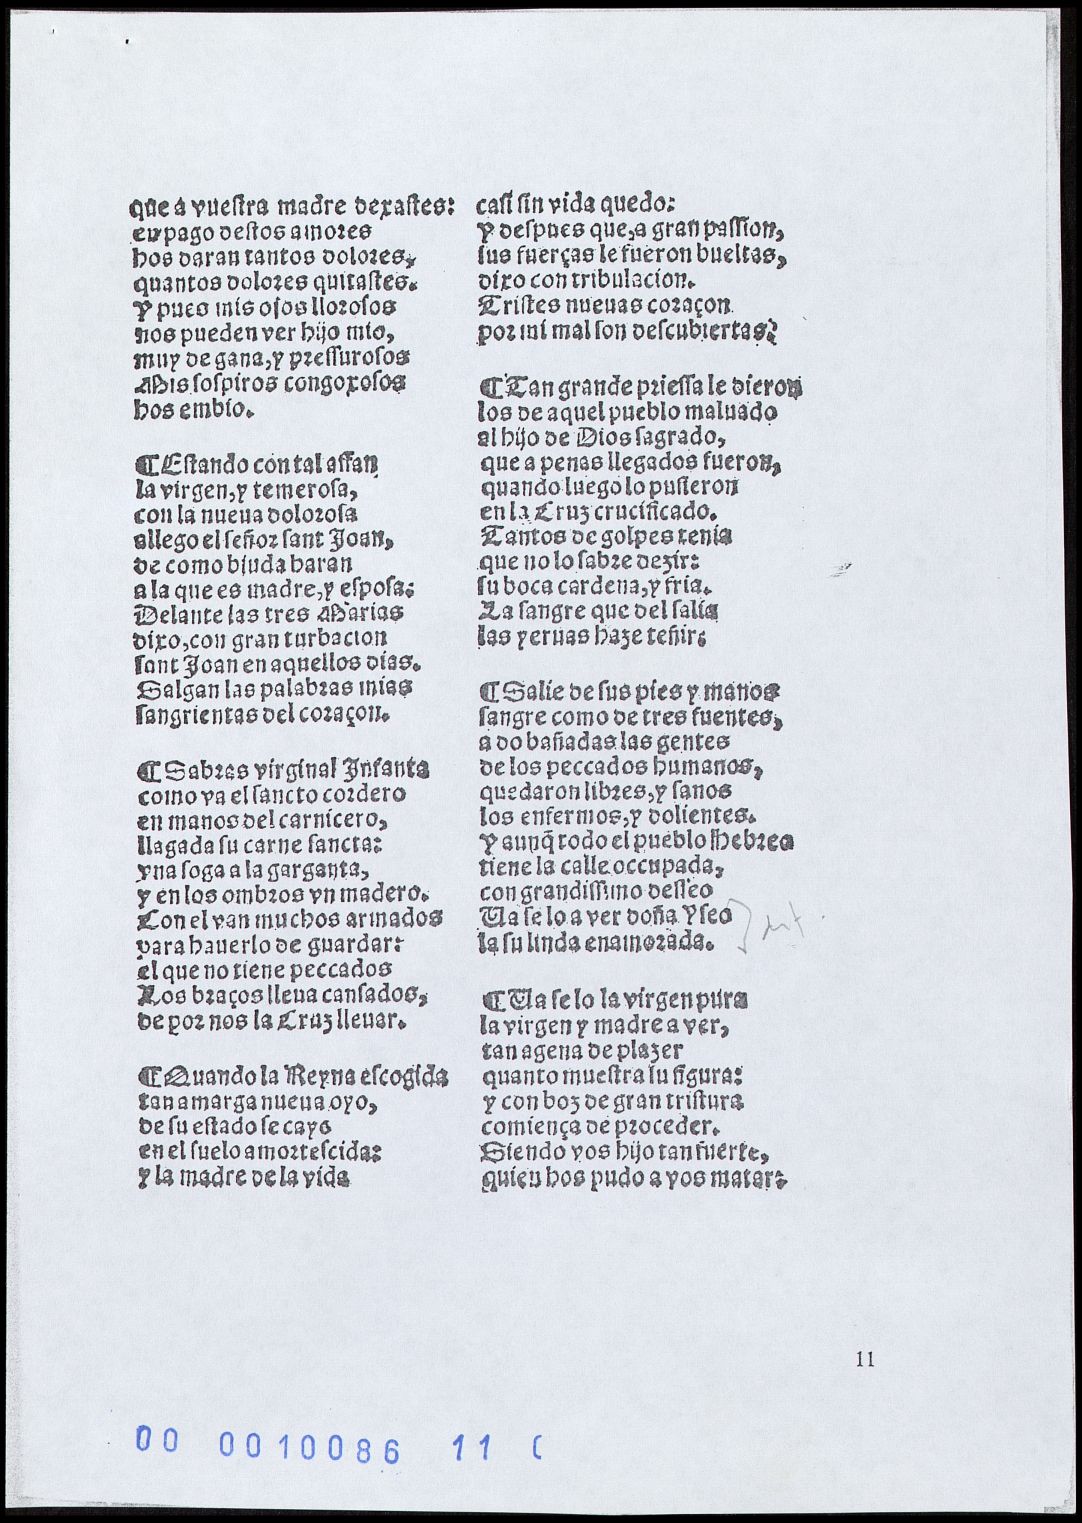 que á vuestra madre dexastes:
en pago destos amores
hos daran tantos dolores,
quantos dolores quitastes.
Y pues mis ojos llorosos
nos pueden ver hijo mio,
muy de gana, y pressurosos
Mis sospiros congoxosos
hos embio.

¶ Estando con tal affan
la virgen, y temerosa,
con la nueua dolorosa
allego el señor sant Joan,
de como biuda haran
a la que es madre, y esposa:
Delante las tres Marias
dixo, con gran turbacion
sant Joan en aquellos dias.
Salgan las palabras mias
sangrientas del coraçon.

¶ Sabras virginal Infanta
como va el sancto cordero
en manos del carnicero,
llagada su carne sancta:
vna soga a la garganta,
y en los ombros vn madero.
Con el van muchos armados
para hauerlo de guardar:
el que no tiene peccados
Los braços lleua cansados,
de por nos la Cruz lleuar.

¶ Quando la Reyna escogida
tan amarga nueua oyo,
de su estado se cayo
en el suelo amortescida:
y la madre de la vida
casi sin vida quedo:
y despues que, a gran passion,
sus fuerças le fueron bueltas,
dixo con tribulacion.
Tristes nueuas coraçon
por mi mal son descubiertas?

¶ Tan grande priessa le dieron
los de aquel pueblo maluado
al hijo de Dios sagrado,
que a penas llegados fueron,
quando luego lo pusieron
en la Cruz crucificado.
Tantos de golpes tenia
que no lo sabre dezir:
su boca cardena, y fria.
La sangre que del salia
las yeruas haze teñir:

¶ Salie de sus pies y manos
sangre como de tres fuentes,
a do bañadas las gentes
de los peccados humanos,
quedaron libres, y sanos
los enfermos, y dolientes.
Y aunq̃ todo el pueblo Hebreo
tiene la calle occupada,
con grandissimo desseo
Ua se lo a ver doña Yseo
la su linda enamorada.

¶ Ua se lo la virgen pura
la virgen y madre a ver,
tan agena de plazer
quanto muestra su figura:
y con boz de gran tristura
comiença de proceder.
Siendo vos hijo tan fuerte,
quien hos pudo a vos matar:
11
00 0010086 11 (